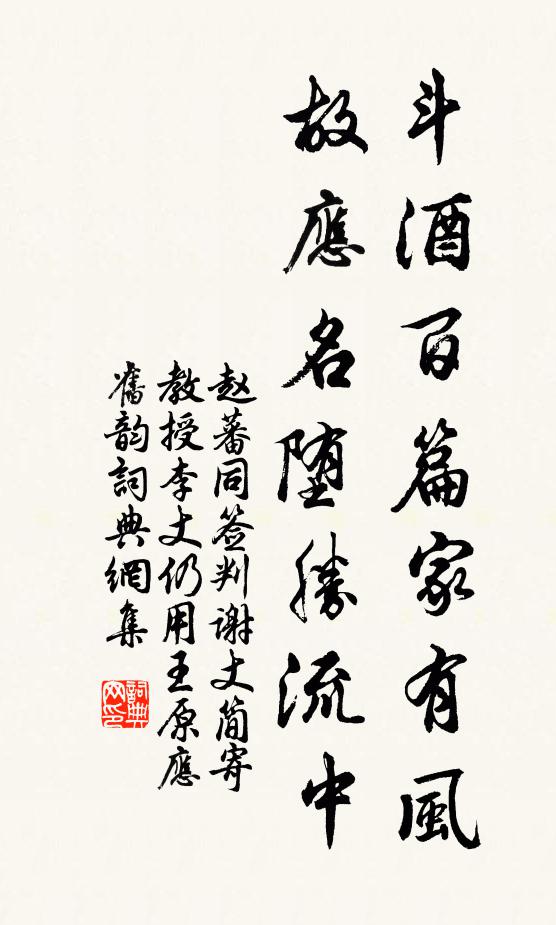 斗酒百篇家有風
故應名堕勝流中
赵蕃同签判谢丈简寄
教授李丈仍用王原應
舊韵詞典網集
詞典網印